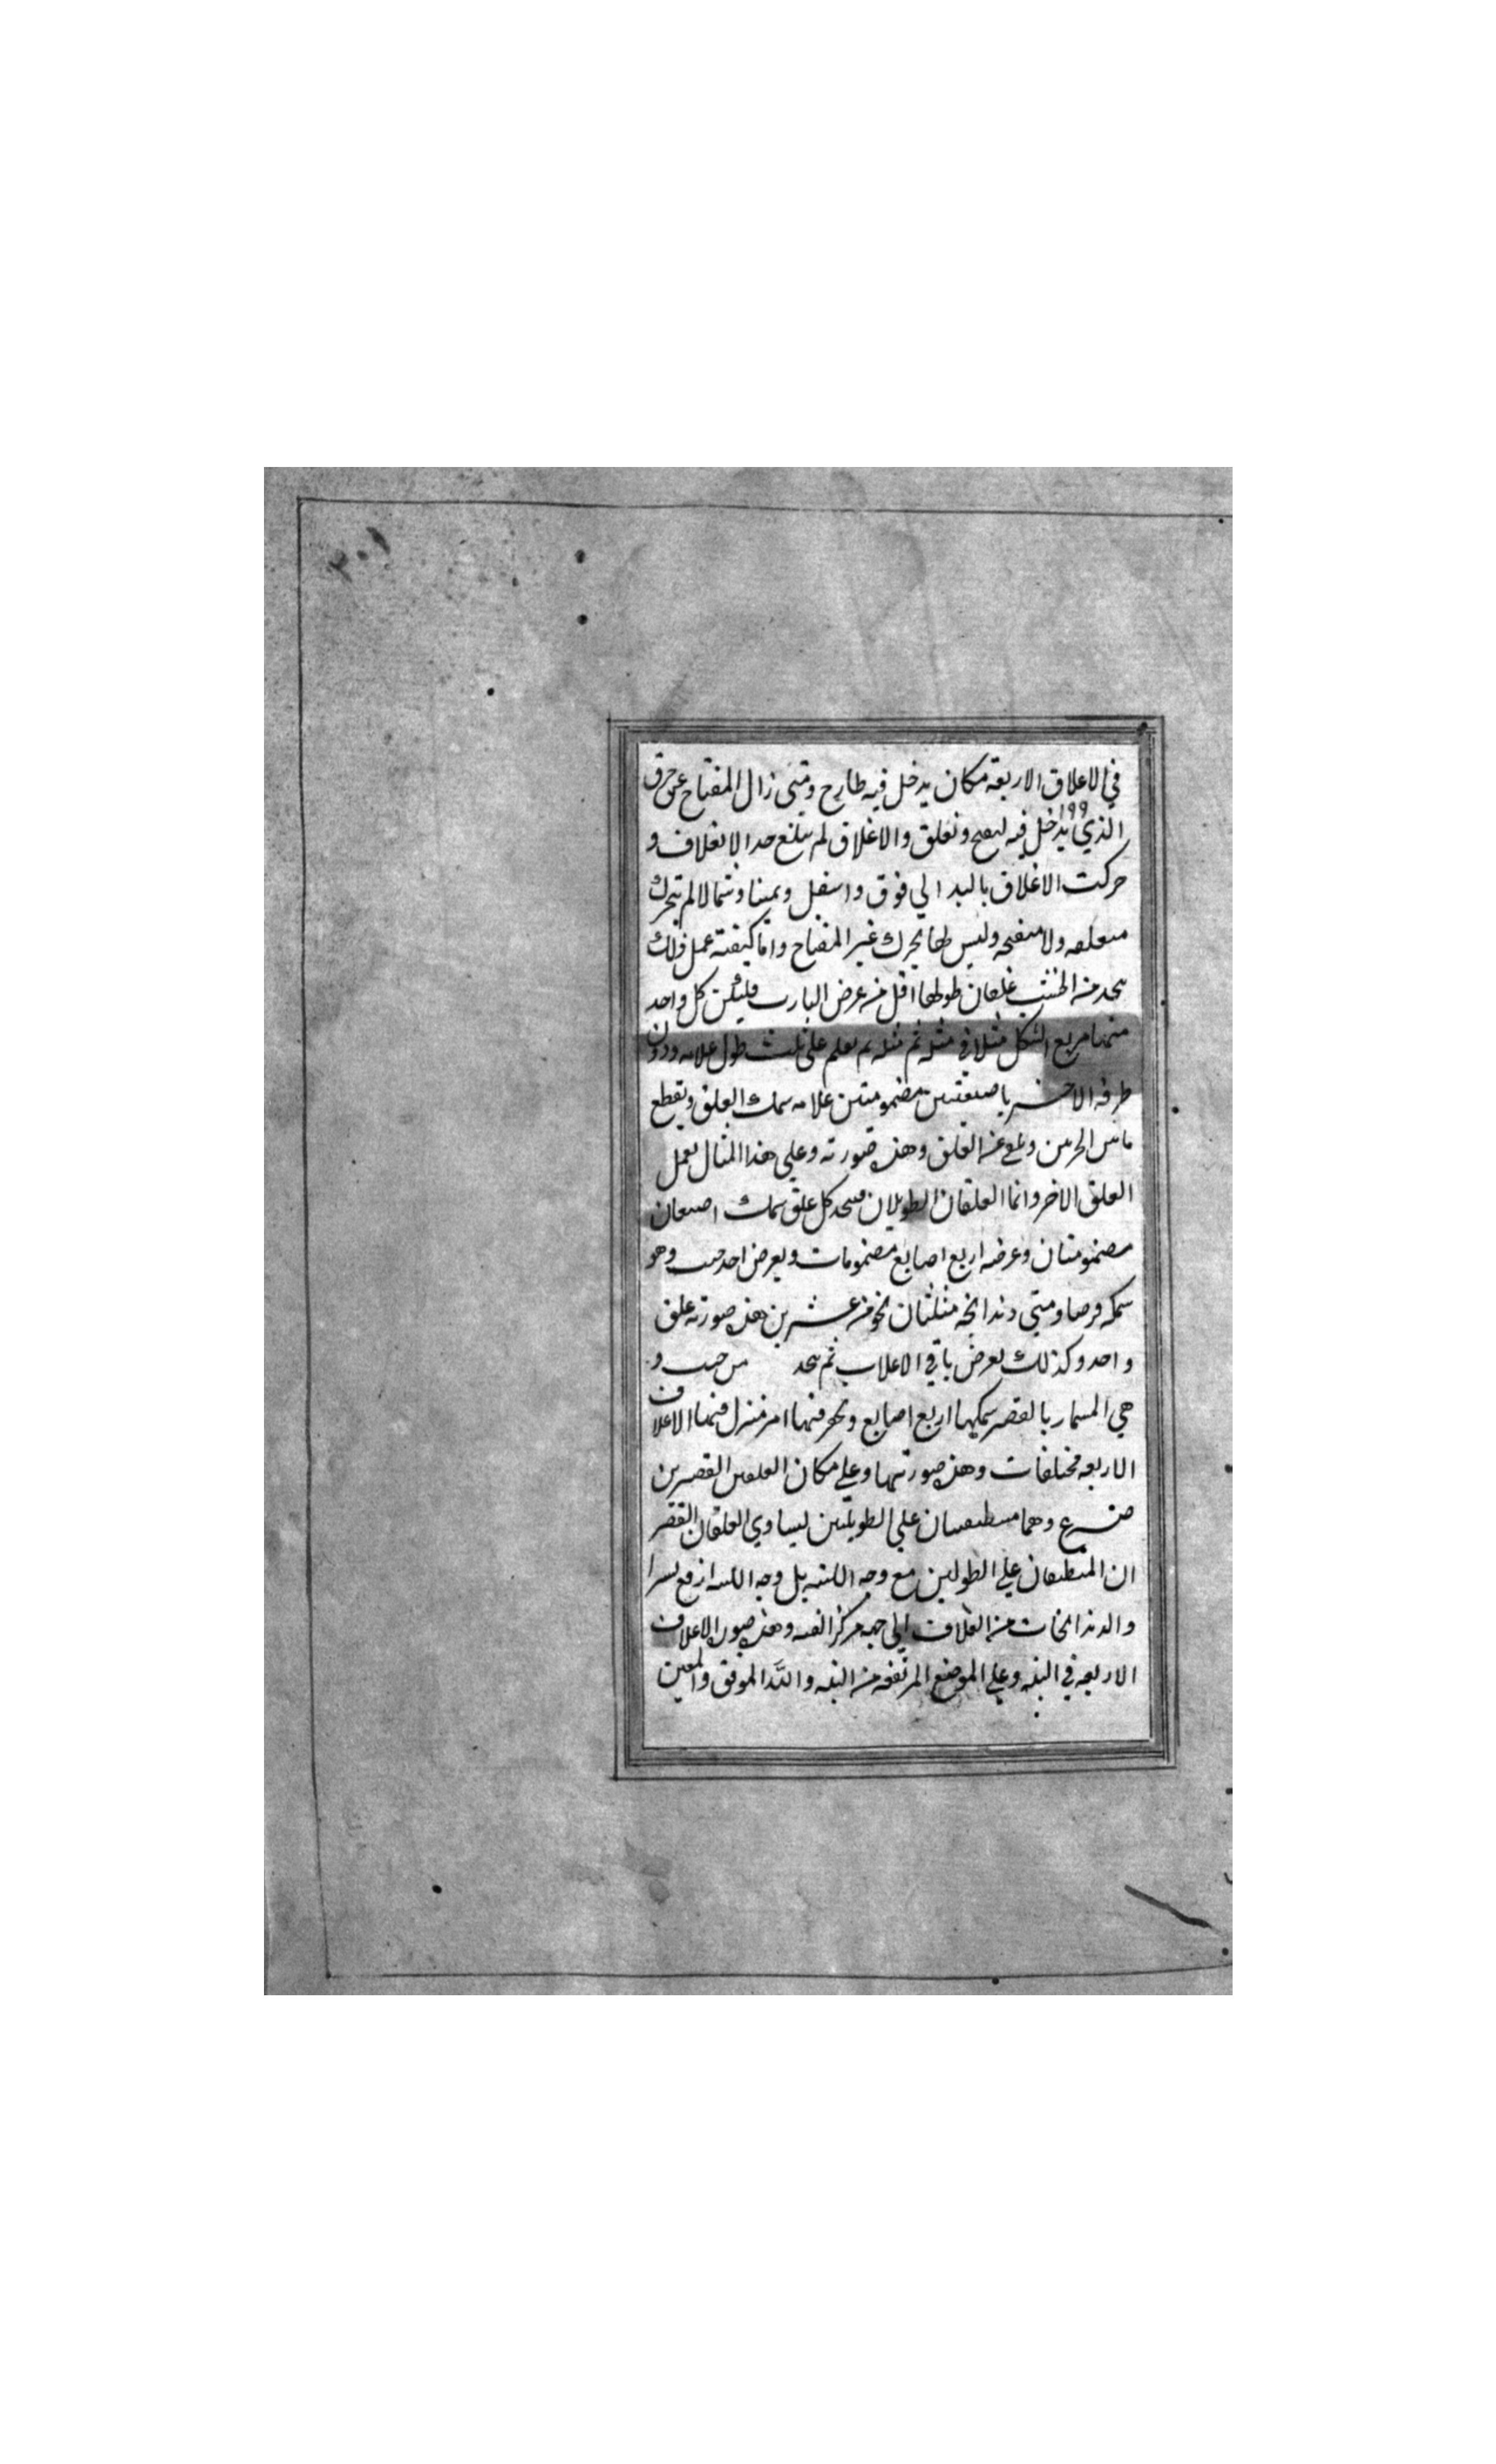 في الاغلاق الاربعة مكان يدخل فيه طارح ومتى زال المفتاح عن خرق
الذي يدخل فيه ليفتح وتغلق والاغلاق لم يبلغ حد الانغلاق و
حركت الاغلاق باليد الي فوق واسفل ويمينا وشمالا لم تتحرك
منغلقه ولا منفتحه وليس لها تحرك غير المفتاح واما كيفية عمل ذلك
يتخذ من الخشب غلقان طولهما اقل من عرض الباب وليكن كل واحد
منهما مربع الشكل مثلا في مثله ثم مثله ثم يعلم على ثلث طول علامه ودون
طرفه الاخر باصبعين مضمومتين علامه سمك الغلق ويقطع
مابين الحزين من الغلق وهذه صورته وعلي هذا المثال يعمل
الغلق الاخر واما الغلقان الطويلان فيتخذ كل غلق سمك اصبعان
مضمومتان وعرضه اربع اصابع مضمومات ويعرض احد جنب وهو
سمكه فرضا ومتى دندانجه مثلثان نحو من عشرين وهذه صورته غلق
واحد وكذلك يعرض باقي الاغلاب ثم يتخذ من خشب و
هي المسمار بالقصر سمكها اربع اصابع وتحز فيها امر منزل فيها الاغلاق
الاربعه مختلفات وهذه صورتها وعلي مكان الغلقين القصيرين
وهما منطبقان علي الطويلين ليساوي الغلقان القصير
ان المنطبقان علي الطولين مع وجه اللبنه بل وجه اللبنه ارفع يسيرا
والدندانجات من الغلاق الي جهه مركز القبه وهذه صوره الاغلاق
الاربعه في البنه وعلي الموضع المرتفعه من البنه والله الموفق والمعين